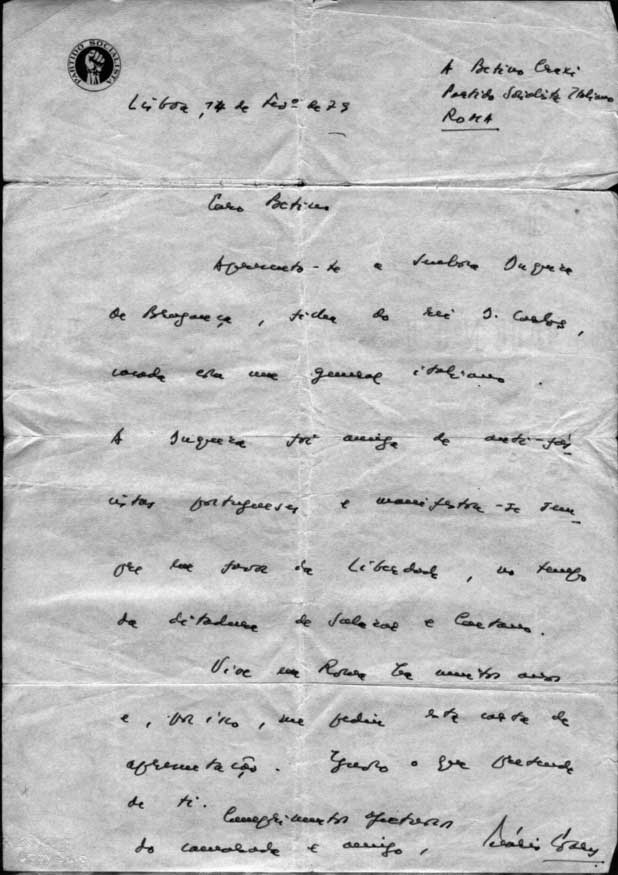 PARTIDO SOCIALISTA
A Betino Craxi
Partido Socialista Italiano
ROMA
Lisboa, 14 de Fev.º de 79
Caro Betino
Apresento-te a Senhora Duqueza
de Bragança, filha do rei D. Carlos,
casada com um general italiano.
A Duqueza foi amiga de anti-fas-
cistas portugueses e manifestou-se sem-
pre em favor da Liberdade, no tempo
da ditadura de Salazar e Caetano.
Vive em Roma há muitos anos
e, por isso, me pediu esta carta de
apresentação. Ignoro o que pretende
de ti.
Cumprimentos afectuosos
do camarada e amigo, Mário Soares